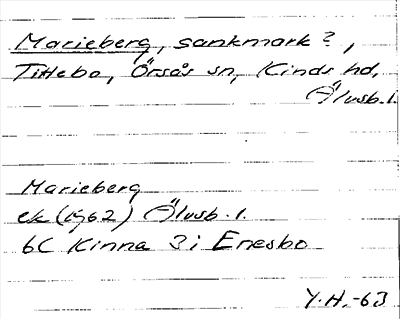 Marieberg, sankmark?,
Tittebo, Örsås sn, Kinds hd,
Älvsb. l.
Marieberg
ek (1962) Älvsb. l.
6C Kinna 3i Enesbo
Y.H.-63